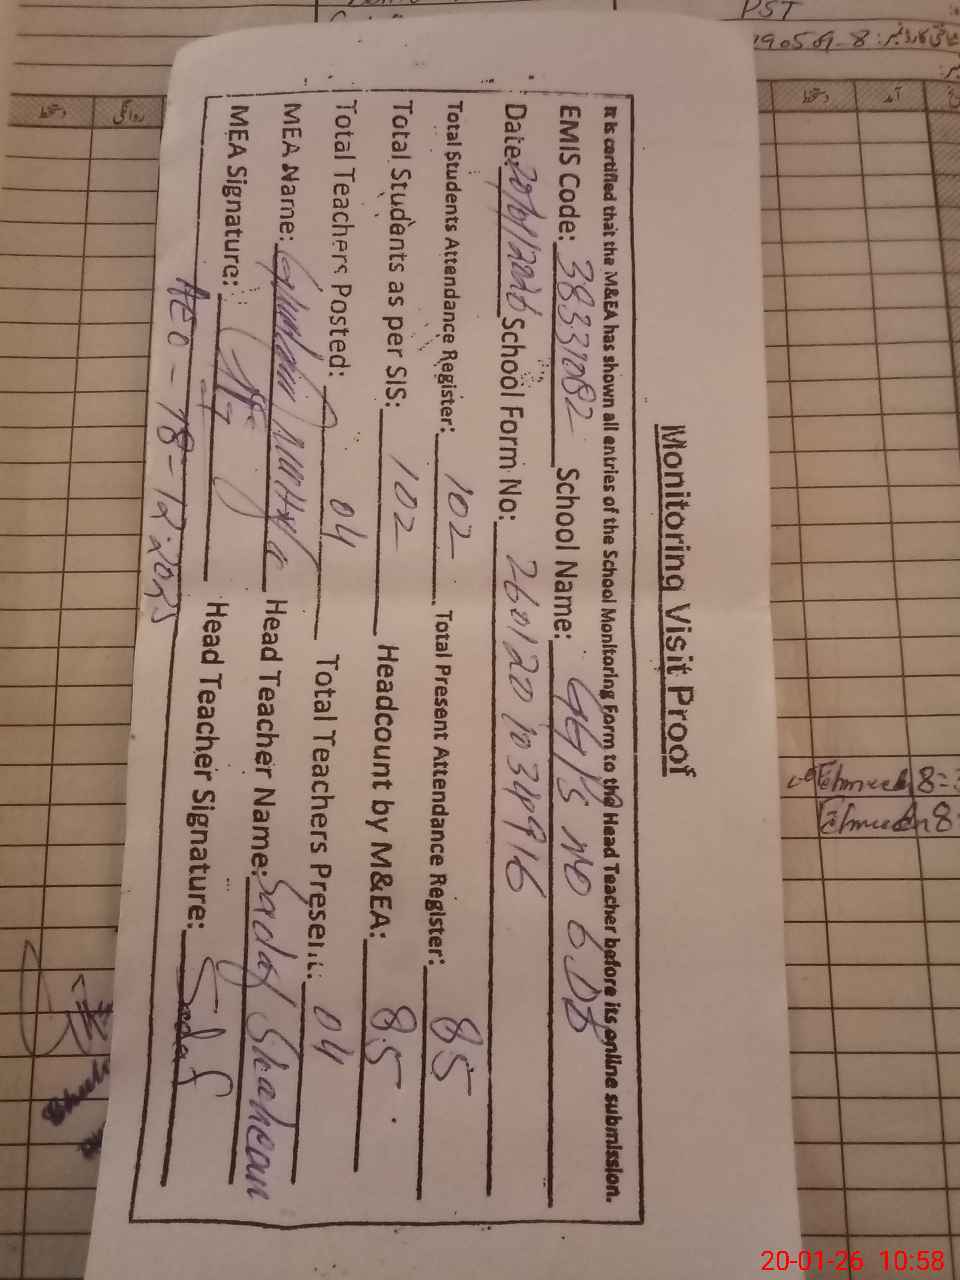 Monitoring Visit Proof
It is certified that the M&EA has shown all entries of the School Monitoring Form to the Head Teacher before its online submission.
EMIS Code: 38331082 School Name: GG/S No 6 DB
Date: 20/01/2026 School Form No: 26012010349916
Total Students Attendance Register: 102 Total Present Attendance Register: 85
Total Students as per SIS: 102 Headcount by M&EA: 85
Total Teachers Posted: 04 Total Teachers Present: 04
MEA Name: Head Teacher Name: Sadaf Shaheen
MEA Signature: Head Teacher Signature: Sadaf
AEO - 18-12-2025
PST
8
آمد
دستخط
روانگی
دستخط
20-01-26 10:58